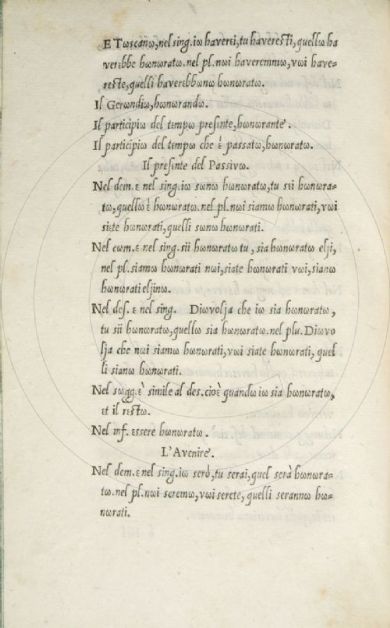 ε Tωscanω, nel sing. iω haverεi, tu haverεsti, quellω ha
verεbbe hωnωratω. nel pl. nωi haveremmω, vωi have-
rεste, quelli haverεbbωnω hωnωratω.
Il Gerωndiω, hωnωrandω.
Il participiω del tempω presεnte, hωnωrante.
Il participiω del tempω che ὲ passatω, hωnωratω.
Il presεnte del Passivω.
Nel dεm. ε nel sing. iω sωnω hωnωratω, tu sεi hωnωra-
tω, quellω ὲ hωnωratω. nel pl. nωi siamω hωnωrati, vωi
siεte hωnωrati, quelli sωnω hωnωrati.
Nel cωm. ε nel sing. sii hωnωratω tu, sia hωnωratω elji,
nel pl. siamω hωnωrati nωi, siate hωnωrati vωi, sianω
hωnωrati eljinω.
Nel des. ε nel sing. Diωvωlja che iω sia hωnωratω,
tu sii hωnωratω, quellω sia hωnωratω. nel plu. Diωvω
lja che nωi siamω hωnωrati, vωi siate hωnωrati, quel
li sianω hωnωrati.
Nel sωgg. ὲ simile al des. ciοὲ quandω iω sia hωnωratω,
εt il rεstω.
Nel inf. εssere hωnωratω.
L'Avenire.
Nel dεm. ε nel sing. iω serὸ, tu serai, quel serà hωnωra-
tω. nel pl. nωi seremω, vωi serete, quelli serannω hω-
nωrati.